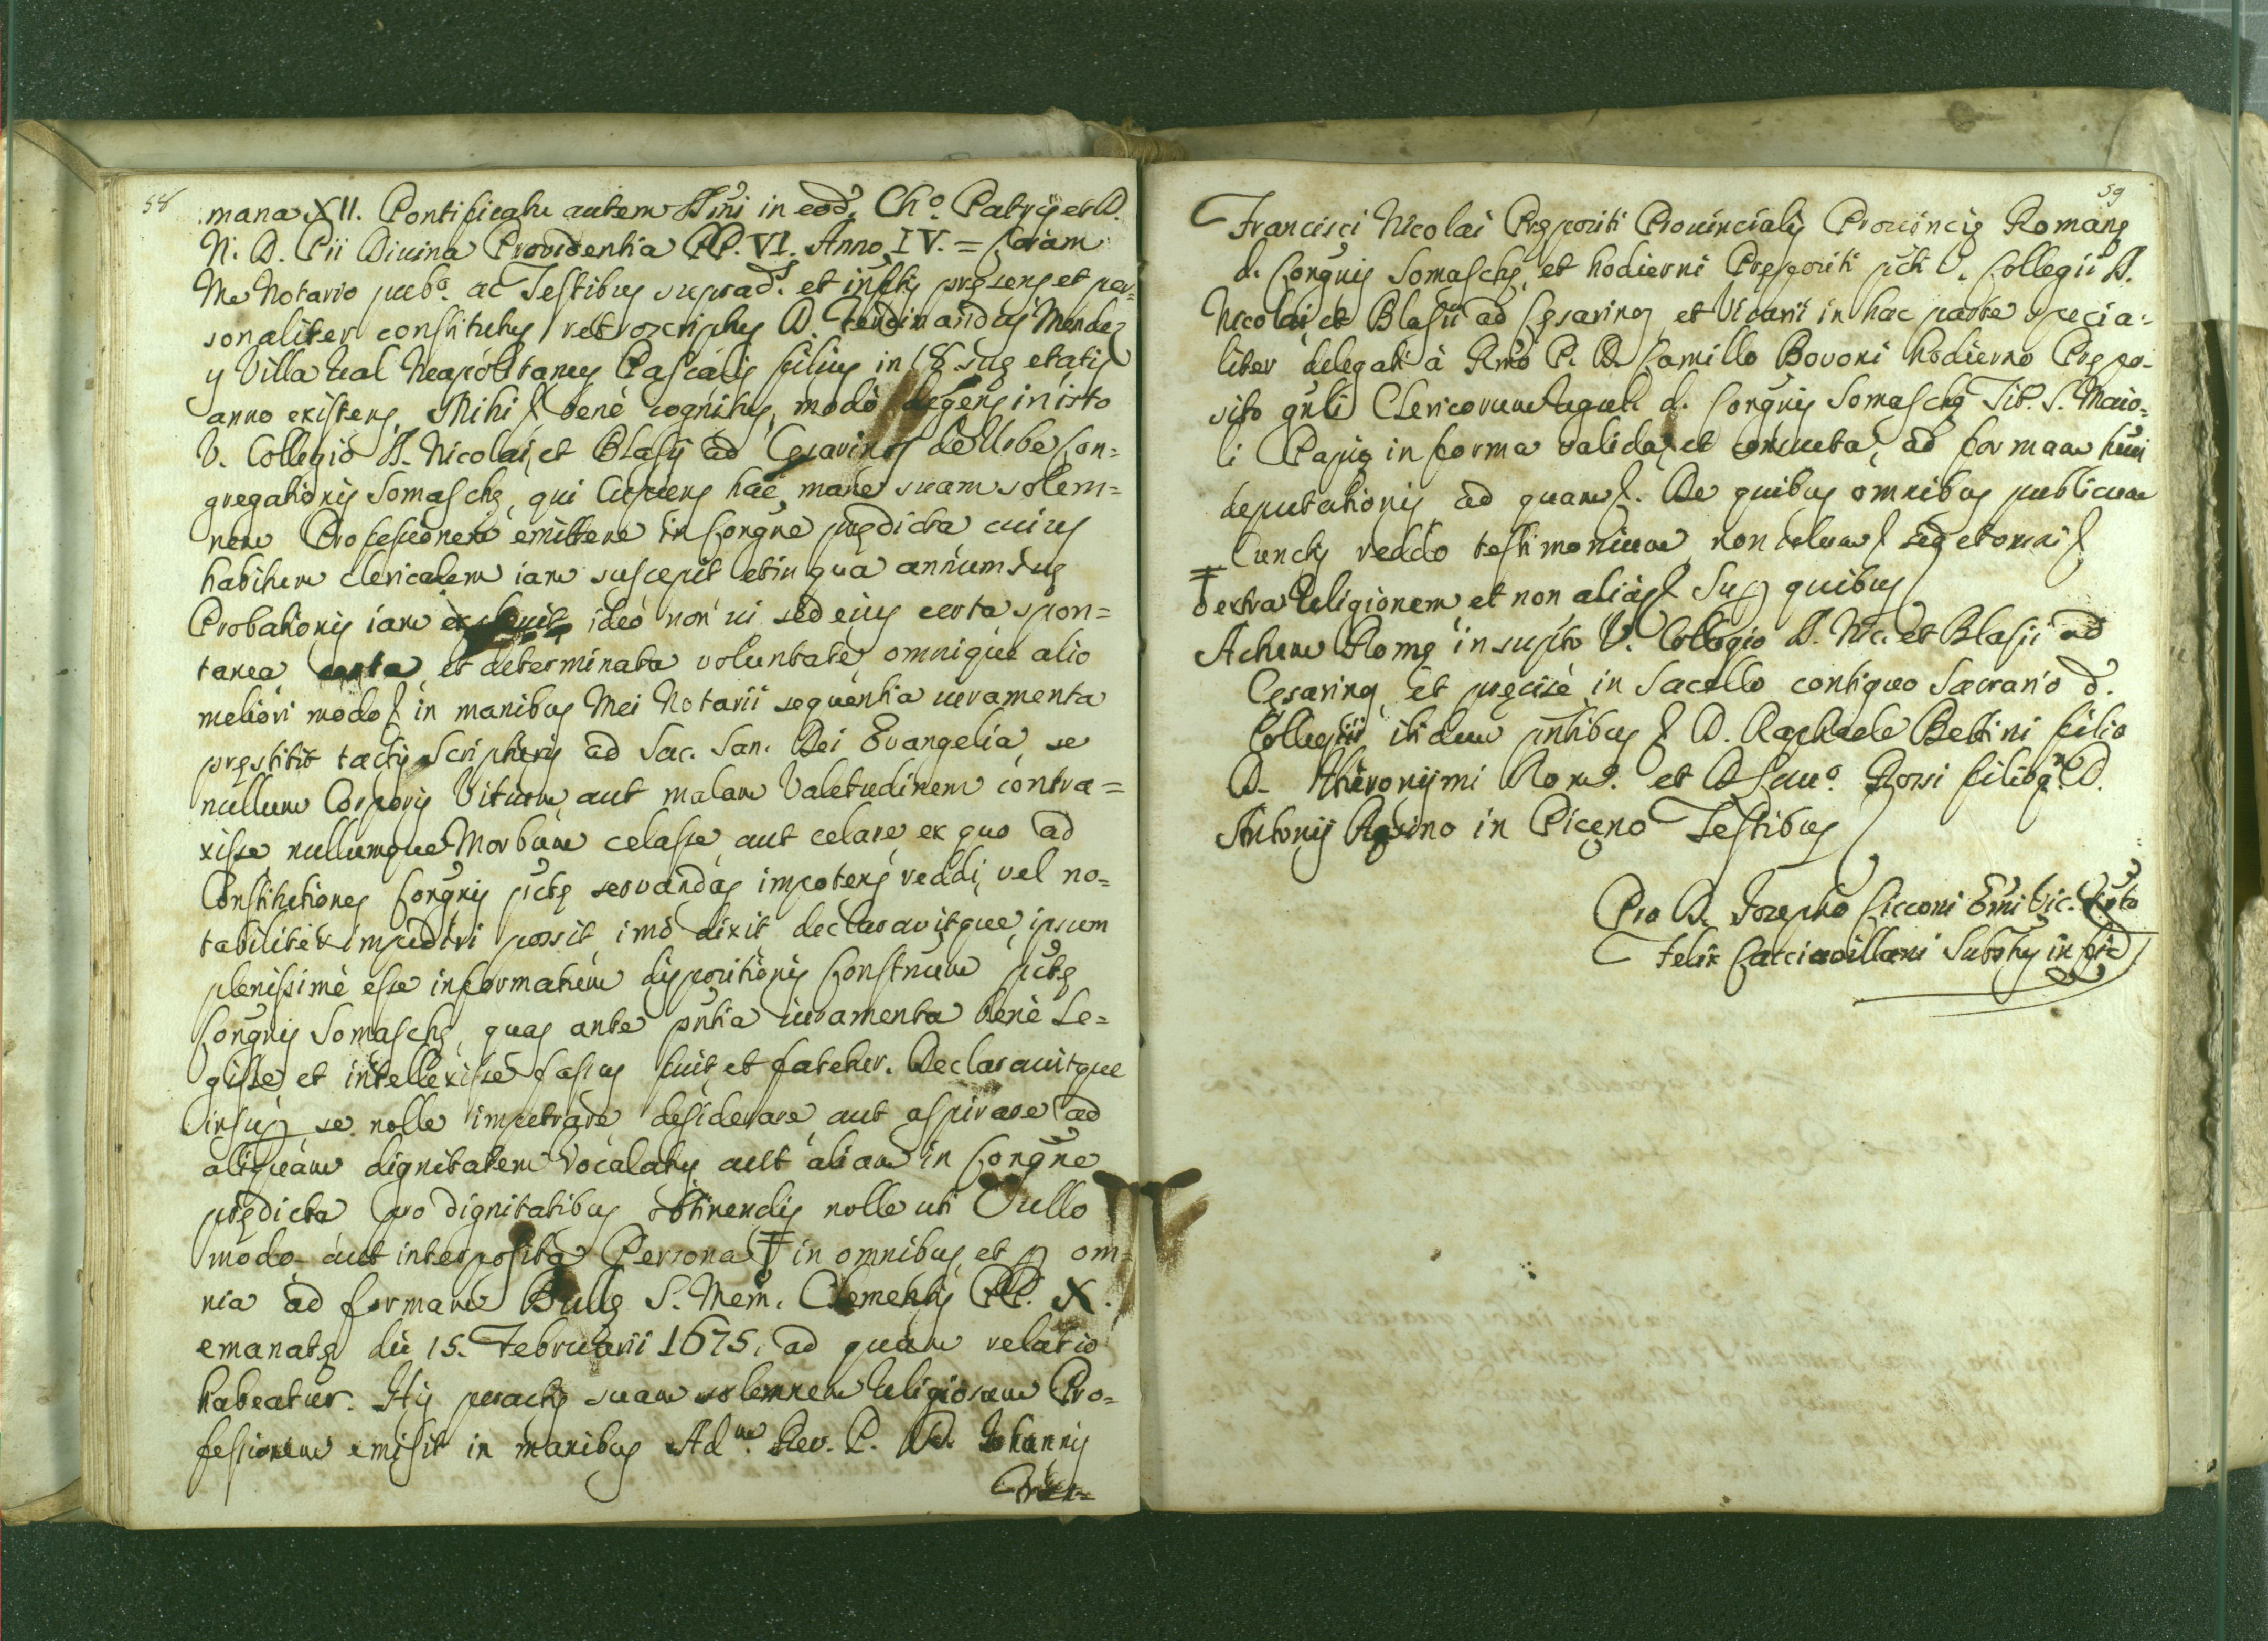 58
mana XII. Pontificatu autem SSmi in eod. Chō. Patris et D.
N. D. Pii Diuina Providentia PP. VI. Anno IV. = Coram
Me Notario pub.º ac Testibus suprad.s et inftis presens et per=
sonaliter constitutus retroscriptus D. Ferdinandus Mendez
y Villa Ual Neapolitanus Pascalis filius in 18. suę etatis
anno existens, Mihi bene cognitus, modo degens in isto
V. Collegio SS. Nicolai, et Blasij ad Cęsarinos de Urbe Con=
gregationis Somaschę, qui Cupiens hac mane suam solem=
nem Professionem emittere in Congne predicta cuius
habitum clericalem iam suscepit et in qua annum suę
Probationis iam ideo non ui sed eius certa spon=
tanea et determinata voluntate omnique alio
meliori modo in manibus Mei Notarii sequentia iuramenta
pręstitit tactis Scripturis ad Sac. San. Dei Evangelia se
nullum Corporis Vitium aut malam Valetudinem contra=
xisse nullumque Morbum celasse aut celare ex quo ad
Constitutiones Congnis pctę servandas impotens reddi, vel no=
tabiliter impediri possit imo dixit declarauitque, ipsum
plenissime esse informatum dispositionis Constnum pctę
Congnis Somaschę, quas ante pntia iuramenta bene Le=
gisse et intellexisse fassus fuit et fatetur. Declarauitque
insup se nolle impetrare desiderare aut aspirare ad
aliquam dignitatem Vocalatus aut aliam in Congne
prędicta pro dignitatibus obtinendis nolle uti Vullo
modo aut interposita Persona ‡ in omnibus, et p om=
nia ad formam Bullę S. Mem. Clementis PP. X.
emanatę die 15. Februarii 1675. ad quam relatio
habeatur. His peractis suam solemnem Religiosam Pro=
fessionem emisit in manibus Adm. Rev. P. D. Iohannis
Fran=
59
Francisci Nicolai Prępositi Prouincialis Prouincię Romanę
d. Congnis Somaschę, et hodierni Prępositi pcti V. Collegii SS.
Nicolai et Blasii ad Cęsarinos et Vicarii in hac parte specia=
liter delegati à Rmo P. D. Camillo Bovoni hodierno Prępo=
sito gnli Clericorum Regul. d. Congnis Somaschę Tit. S. Maio=
li Papię in forma valida, et consueta, ad formam
deputationis ad quam. De quibus omnibus publicum
Cunctis reddo testimonium non solum sed et omni
‡ extra Religionem et non alias Sup quibus
Actum Romę in supto V. Collegio SS. Nic. et Blasii ad
Cęsarinos, et pręcise in Sacello contiguo Sacrario d.
Collegii ibidem pntibus D. Raphaele Bettini filio
D. Hieronymi Rom.º et D. Rossi filio qm D.
Antonij in Piceno Testibus
Pro D. Iosepho Cicconi Emi Vic. Nrio
Felix Cacciavillani Substus in fid